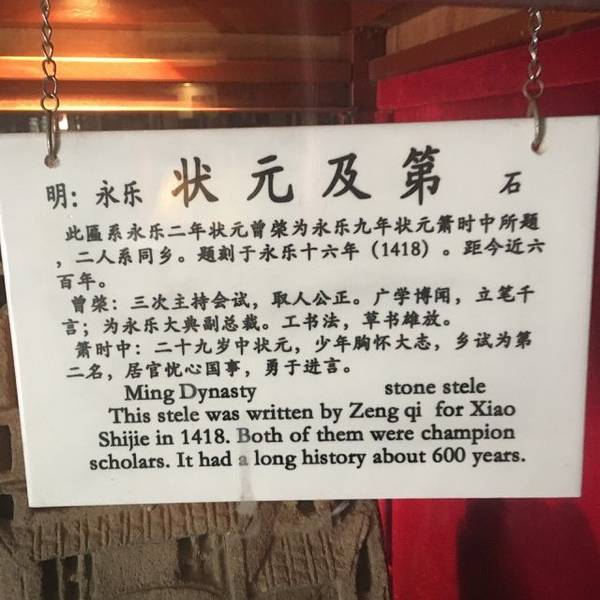 明：永乐 状元及第 石
此匾系永乐二年状元曾棨为永乐九年状元箫时中所题
，二人系同乡。题刻于永乐十六年（1418）。距今近六
百年。
曾棨：三次主持会试，取人公正。广学博闻，立笔千
言；为永乐大典副总裁。工书法，草书雄放。
箫时中：二十九岁中状元，少年胸怀大志，乡试为第
二名，居官忧心国事，勇于进言。
Ming Dynasty stone stele
This stele was written by Zeng qi for Xiao
Shijie in 1418. Both of them were champion
scholars. It had a long history about 600 years.